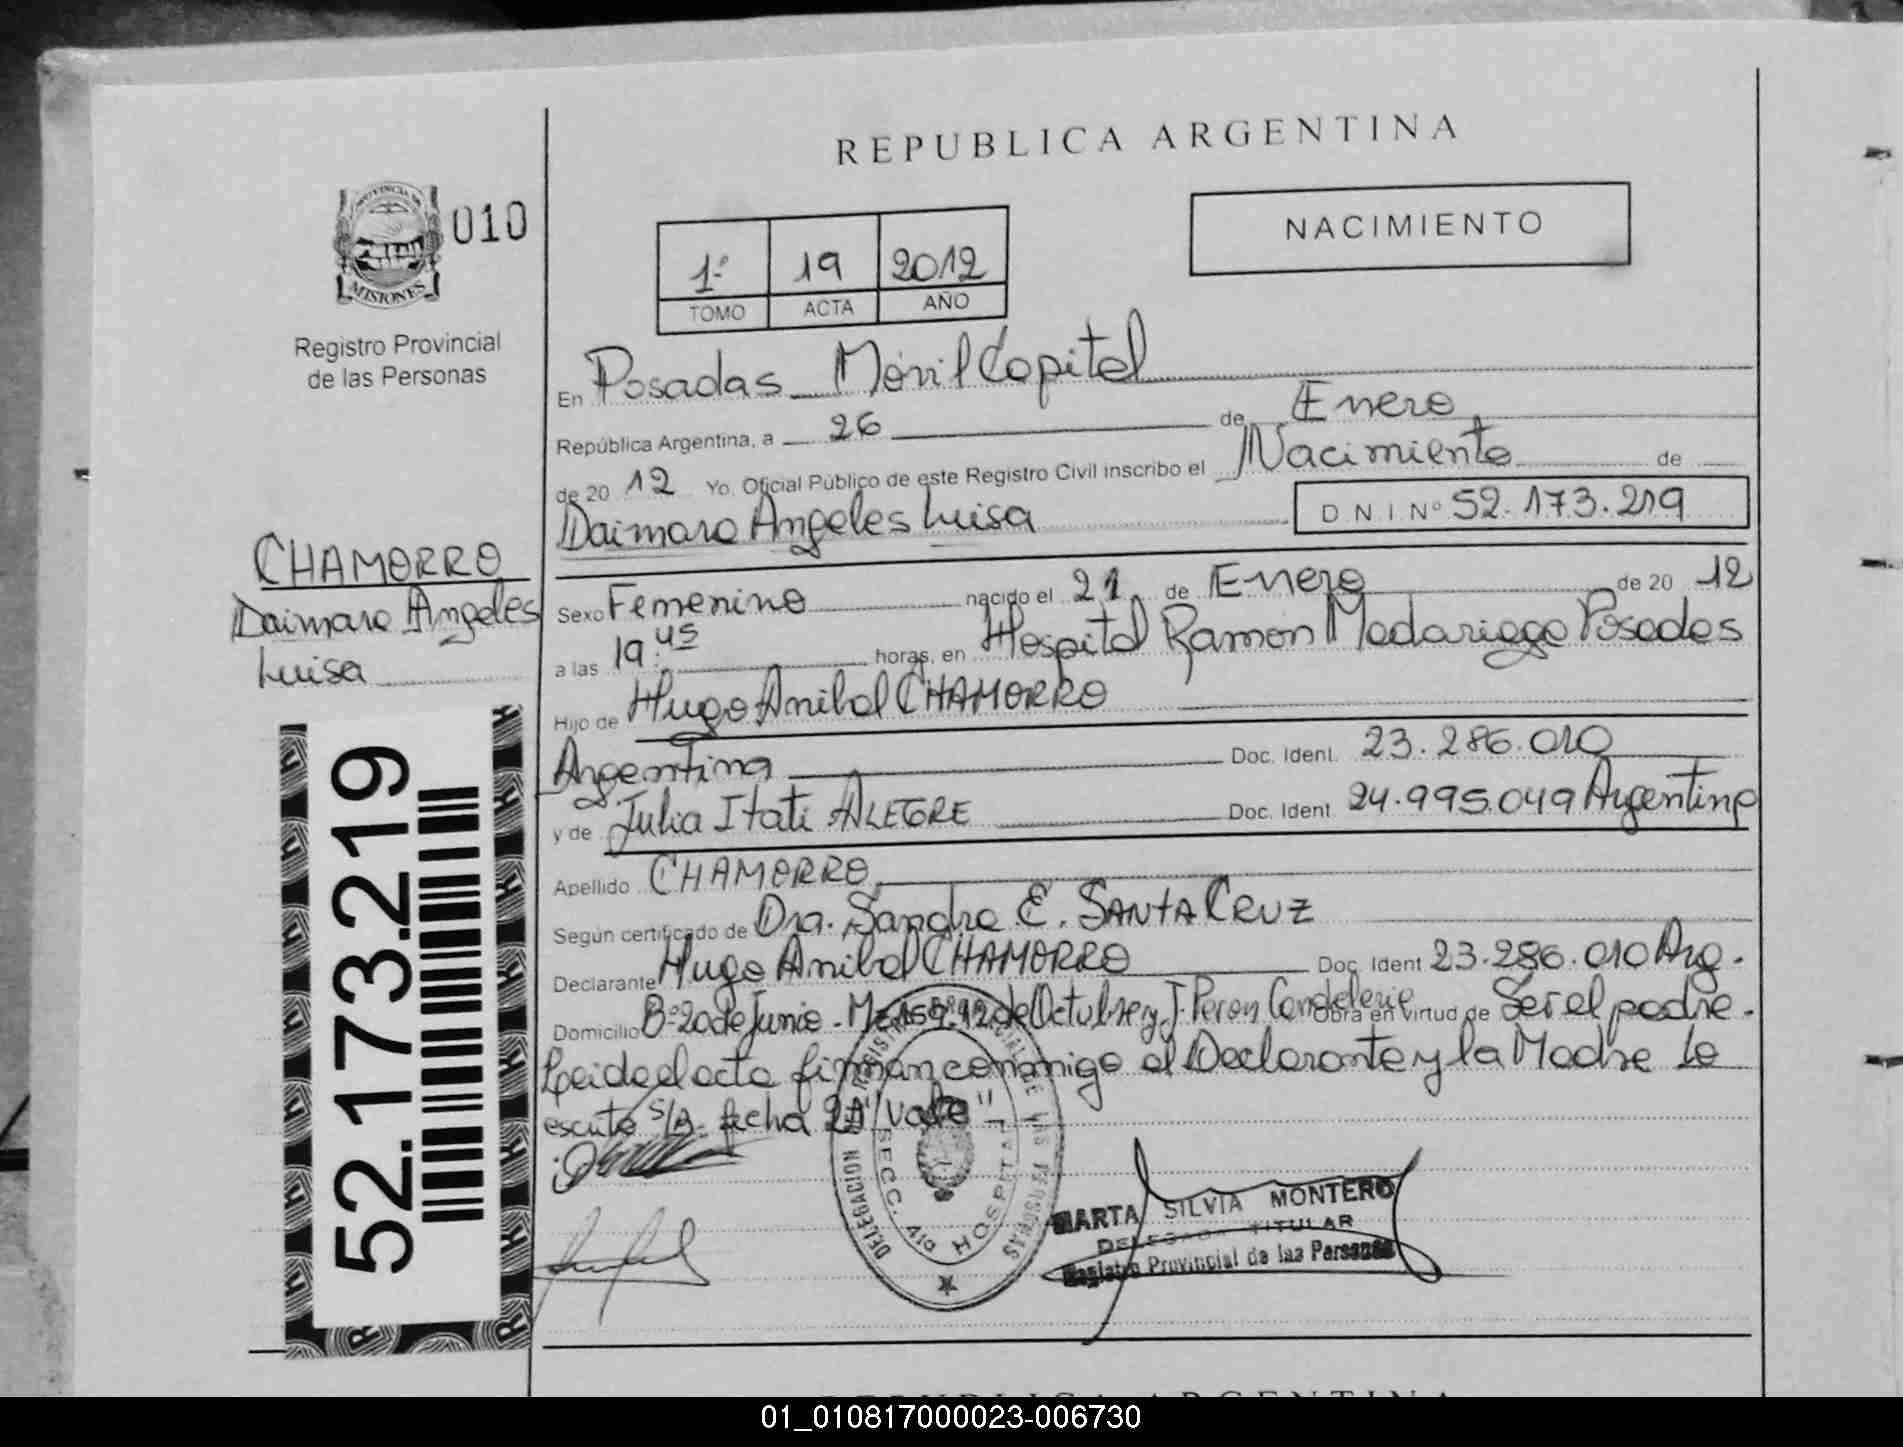 REPUBLICA ARGENTINA
PROVINCIA DE
MISIONES
010
Registro Provincial
de las Personas
NACIMIENTO
1º 19 2012
TOMO ACTA AÑO
En Posadas Móvil Capital
República Argentina, a 26 de Enero
de 20 12 Yo, Oficial Público de este Registro Civil inscribo el Nacimiento de
Daimara Angeles Luisa D N I Nº 52.173.219
CHAMORRO
Daimara Angeles
Luisa
Sexo Femenino nacido el 21 de Enero de 20 12
a las 19:45 horas, en Hospital Ramon Madariaga Posadas
Hijo de Hugo Anibal CHAMORRO
Argentina Doc. Ident. 23.286.010
y de Julia Itati ALEGRE Doc. Ident 24.995.049 Argentina
Apellido CHAMORRO
Según certificado de Dra. Sandra E. SANTA CRUZ
Declarante Hugo Anibal CHAMORRO Doc. Ident 23.286.010 Arg.
Domicilio Bº 20 de Junio - 12 de Octubre y J. Peron Candelaria Obra en virtud de Ser el padre.
Leida el acta firman conmigo el Declarante y la Madre Lo
escrito S/A fecha 21 "Vale"
52.173.219
DELEGACION REGISTRO PROVINCIAL DE LAS PERSONAS
SECC. 4ta HOSPITAL
MARTA SILVIA MONTERO
DELEGADA TITULAR
Registro Provincial de las Personas
REPUBLICA ARGENTINA
01_010817000023-006730